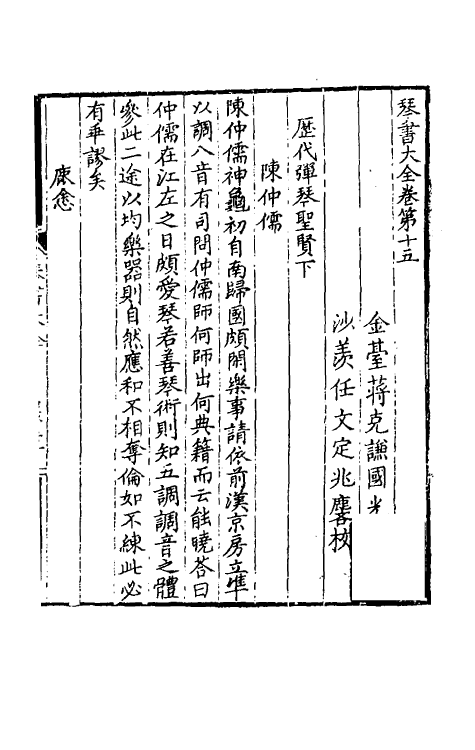 琴書大全卷第十五
金臺蔣克謙國光
沙羨任文定兆麐校
歷代彈琴聖賢下
陳仲儒
陳仲儒神龜初自南歸國頗閑樂事請依前漢京房立準
以調八音有司問仲儒師何師出何典籍而云能曉荅曰
仲儒在江左之日頗愛琴若善琴術則知五調調音之體
參此二途以均樂器則自然應和不相奪倫如不練此必
有乖謬矣
康悆